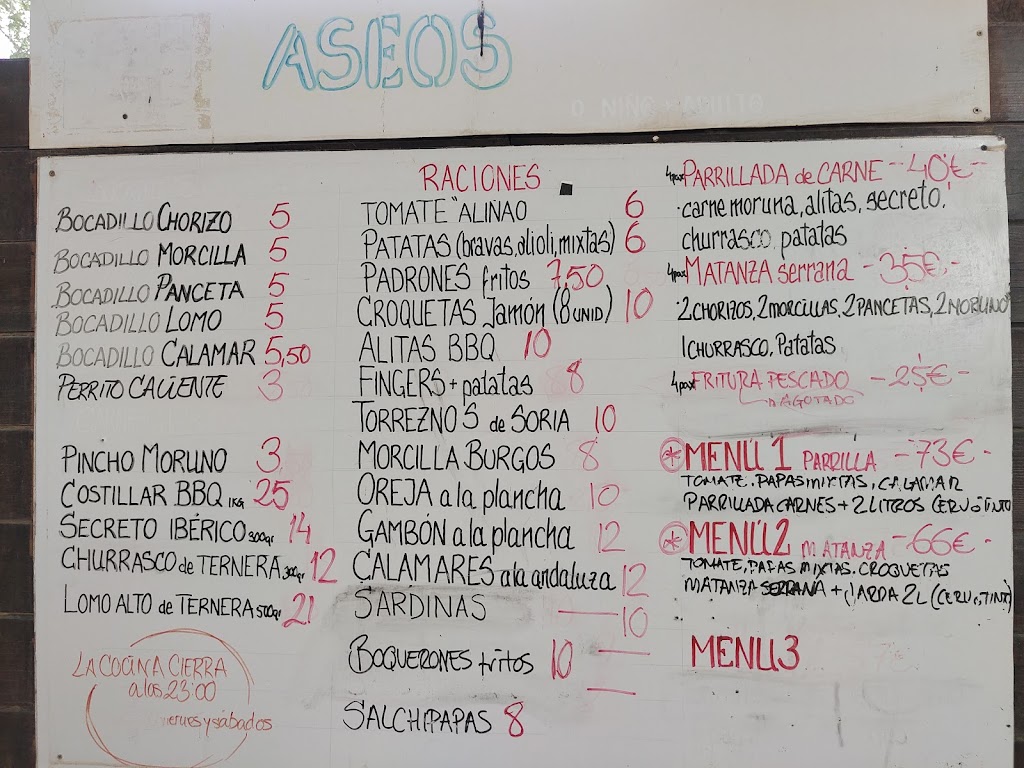 ASEOS
BOCADILLO CHORIZO 5
BOCADILLO MORCILLA 5
BOCADILLO PANCETA 5
BOCADILLO LOMO 5
BOCADILLO CALAMAR 5,50
PERRITO CALIENTE 3
PINCHO MORUNO 3
COSTILLAR BBQ 1KG 25
SECRETO IBÉRICO 300gr 14
CHURRASCO de TERNERA 300gr 12
LOMO ALTO de TERNERA 500gr 21
LA COCINA CIERRA
a las 23:00
viernes y sábados
RACIONES
TOMATE "ALIÑAO 6
PATATAS (bravas, alioli, mixtas) 6
PADRONES fritos 7,50
CROQUETAS Jamón (8 UNID) 10
ALITAS BBQ 10
FINGERS + patatas 8
TORREZNOS de SORIA 10
MORCILLA BURGOS 8
OREJA a la plancha 10
GAMBÓN a la plancha 12
CALAMARES a la andaluza 12
SARDINAS — 10
BOQUERONES fritos 10
SALCHIPAPAS 8
4pax PARRILLADA de CARNE - 40€ -
· carne moruna, alitas, secreto,
churrasco, patatas
4pax MATANZA serrana - 35€ -
· 2 CHORIZOS, 2 MORCILLAS, 2 PANCETAS, 2 MORUNO
1 CHURRASCO, Patatas
4pax FRITURA PESCADO - 25€ -
AGOTADO
* MENÚ 1 PARRILLA - 73€ -
TOMATE. PAPAS MIXTAS, CALAMAR
PARRILLADA CARNES + 2 LITROS CERV o TINTO
* MENÚ 2 MATANZA - 66€ -
TOMATE, PAPAS MIXTAS. CROQUETAS
MATANZA SERRANA + JARDA 2L (CERV o TINTO)
MENÚ 3